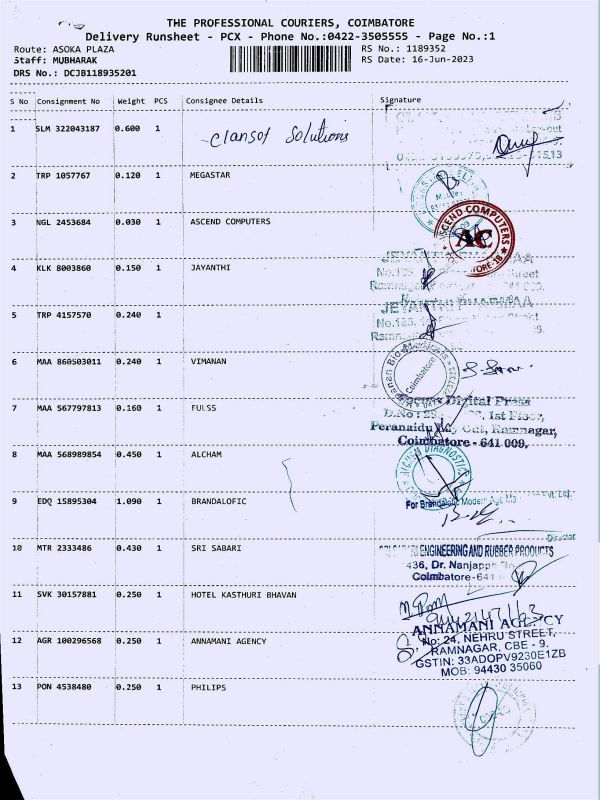 THE PROFESSIONAL COURIERS, COIMBATORE
Delivery Runsheet - PCX - Phone No.:0422-3505555 - Page No.:1
Route: ASOKA PLAZA
RS No.: 1189352
Staff: MUBHARAK
RS Date: 16-Jun-2023
DRS No.: DCJB118935201
S No Consignment No Weight PCS Consignee Details Signature
1 SLM 322043187 0.600 1 Clansof Solutions
2 TRP 1057767 0.120 1 MEGASTAR
3 NGL 2453684 0.030 1 ASCEND COMPUTERS
ASCEND COMPUTERS
AC
4 KLK 8003860 0.150 1 JAYANTHI
Street
5 TRP 4157570 0.240 1
6 MAA 860503011 0.240 1 VIMANAN
Coimbatore
7 MAA 567797813 0.160 1 FULSS
Digital Press
1st Floor,
Peranaidu Out, Ramnagar,
Coimbatore - 641 009.
8 MAA 568989854 0.450 1 ALCHAM
DIAGNOSTICS
9 EDQ 15895304 1.090 1 BRANDALOFIC
For
Director
10 MTR 2333486 0.430 1 SRI SABARI
ENGINEERING AND RUBBER PRODUCTS
436, Dr. Nanjappa
Coimbatore-641
11 SVK 30157881 0.250 1 HOTEL KASTHURI BHAVAN
12 AGR 100296568 0.250 1 ANNAMANI AGENCY
ANNAMANI AGENCY
No: 24, NEHRU STREET,
RAMNAGAR, CBE - 9.
GSTIN: 33ADOPV9230E1ZB
MOB: 94430 35060
13 PON 4538480 0.250 1 PHILIPS